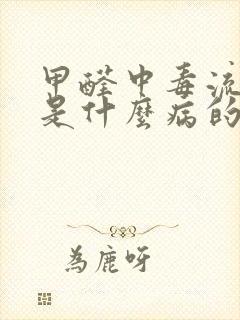 甲醛中毒流
是什麼病的
為鹿呀